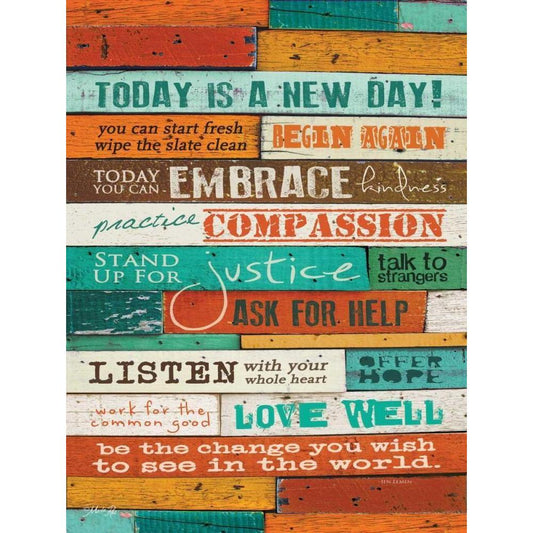 TODAY IS A NEW DAY!
you can start fresh
wipe the slate clean
BEGIN AGAIN
TODAY
YOU CAN EMBRACE kindness
practice COMPASSION
STAND
UP FOR justice
talk to
strangers
ASK FOR HELP
LISTEN with your
whole heart
OFFER
HOPE
work for the
common good
LOVE WELL
be the change you wish
to see in the world.